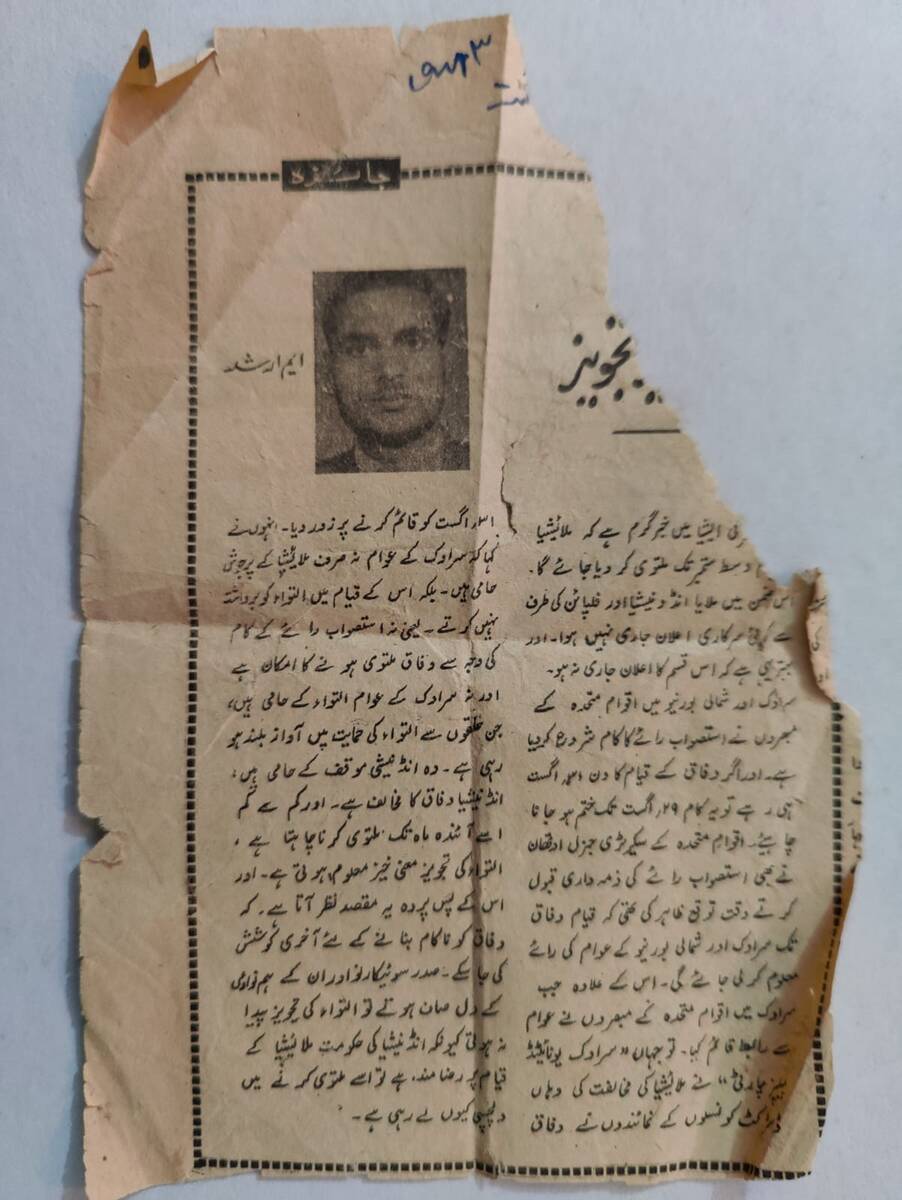 جائزہ
تجویز
ایم ارشد
ایشیا میں خبر گرم ہے کہ ملائیشیا
وسط ستمبر تک ملتوی کر دیا جائے گا۔
اس ضمن میں ملایا انڈونیشیا اور فلپائن کی طرف
سے کوئی سرکاری اعلان جاری نہیں ہوا۔ اور
بہتر یہی ہے کہ اس قسم کا اعلان جاری نہ ہو۔
سراوک اور شمالی بورنیو میں اقوام متحدہ کے
مبصروں نے استصواب رائے کا کام شروع کر دیا
ہے۔ اور اگر وفاق کے قیام کا دن ۳۱ اگست
ہی رہے تو یہ کام ۲۹ اگست تک ختم ہو جانا
چاہیئے۔ اقوام متحدہ کے سکریٹری جنرل اوتھان
نے بھی استصواب رائے کی ذمہ داری قبول
کرتے وقت توقع ظاہر کی تھی کہ قیام وفاق
تک سراوک اور شمالی بورنیو کے عوام کی رائے
معلوم کر لی جائے گی۔ اس کے علاوہ جب
سراوک میں اقوام متحدہ کے مبصروں نے عوام
سے رابطہ قائم کیا۔ تو جہاں "سراوک یونائیٹڈ
پیپلز پارٹی" نے ملائیشیا کی مخالفت کی وہاں
ڈسٹرکٹ کونسلوں کے نمائندوں نے وفاق
۳۱ اگست کو قائم کرنے پر زور دیا۔ انہوں نے
کہا کہ سراوک کے عوام نہ صرف ملائیشیا کے پرجوش
حامی ہیں۔ بلکہ اس کے قیام میں التواء کو برداشت
نہیں کرتے۔ یعنی نہ استصواب رائے کے کام
کی وجہ سے وفاق ملتوی ہونے کا امکان ہے
اور نہ سراوک کے عوام التواء کے حامی ہیں،
جن حلقوں سے التواء کی حمایت میں آواز بلند ہو
رہی ہے۔ وہ انڈونیشی موقف کے حامی ہیں،
انڈونیشیا وفاق کا مخالف ہے۔ اور کم سے کم
اسے آئندہ ماہ تک ملتوی کرنا چاہتا ہے،
التواء کی تجویز معنی خیز معلوم ہوتی ہے۔ اور
اس کے پس پردہ یہ مقصد نظر آتا ہے۔ کہ
وفاق کو ناکام بنانے کے لئے آخری کوشش
کی جا سکے۔ صدر سوئیکارنو اور ان کے ہم نواؤں
کے دل صاف ہوتے تو التواء کی تجویز پیدا
نہ ہوتی کیونکہ انڈونیشیا کی حکومت ملائیشیا کے
قیام پر رضا مند ہے تو اسے ملتوی کرنے میں
دلچسپی کیوں لے رہی ہے۔